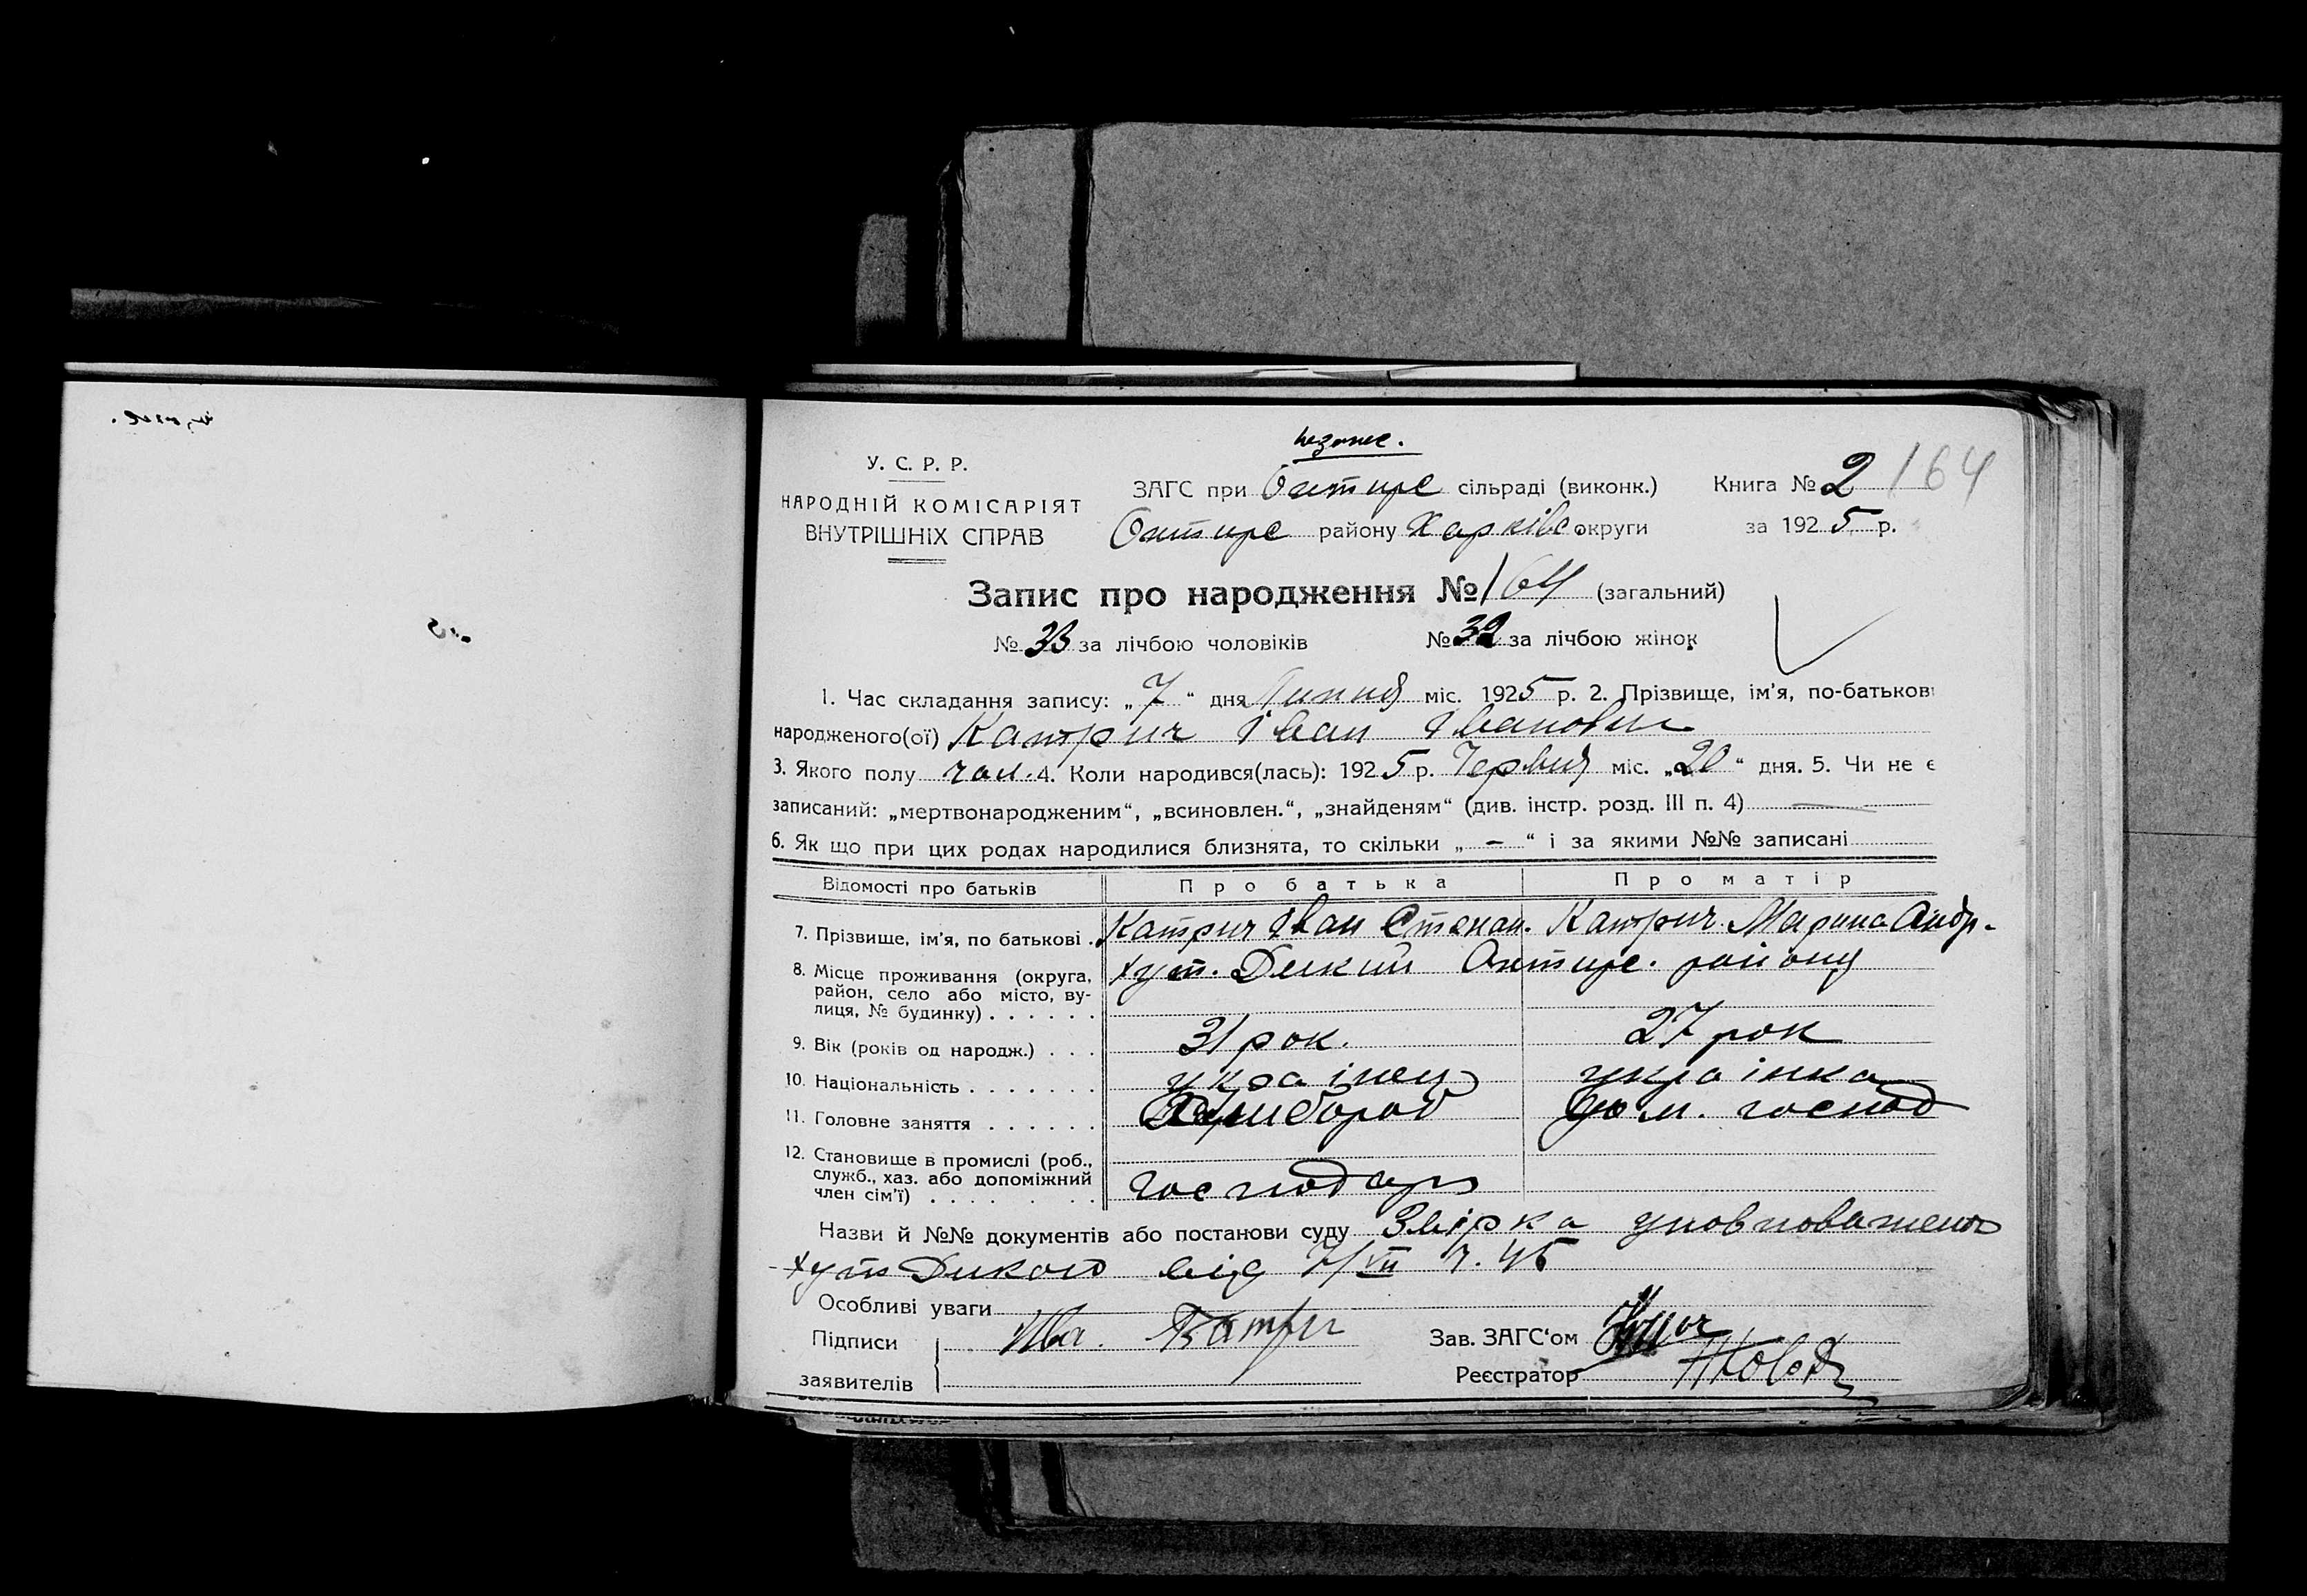 У. С. Р. Р.
НАРОДНІЙ КОМІСАРІЯТ
ВНУТРІШНІХ СПРАВ
ЗАГС при Охтирс сільраді (виконк.) Книга № 2 164
Охтирс району Харківс округи за 1925 р.
Запис про народження № 164 (загальний)
№ 33 за лічбою чоловіків № 32 за лічбою жінок
1. Час складання запису: „7“ дня Липня міс. 1925 р. 2. Прізвище, ім'я, по-батькові
народженого(ої) Катрич Іван Іванович
3. Якого полу чол. 4. Коли народився(лась): 1925 р. Червня міс. „20“ дня. 5. Чи не є
записаний: „мертвонародженим“, „всиновлен.“, „знайденям“ (див. інстр. розд. III п. 4) —
6. Як що при цих родах народилися близнята, то скільки „ — “ і за якими №№ записані
Відомості про батьків Про батька Про матір
7. Прізвище, ім'я, по батькові . Катрич Іван Степан. Катрич Марина Андр.
8. Місце проживання (округа, хут. Дикий Охтирс. району
район, село або місто, ву-
лиця, № будинку) . . . . . .
9. Вік (років од народж.) . . . 31 рок. 27 рок
10. Національність . . . . . . . українец українка
11. Головне заняття . . . . . . Хлібороб дом. господ
12. Становище в промислі (роб.,
служб., хаз. або допоміжний
член сім'ї) . . . . . . . . господарь
Назви й №№ документів або постанови суду Звірка уповноважено
хут Дикого від 7/VII ч. 45
Особливі уваги
Підписи Ива. Катрич Зав. ЗАГС'ом
заявителів Реєстратор